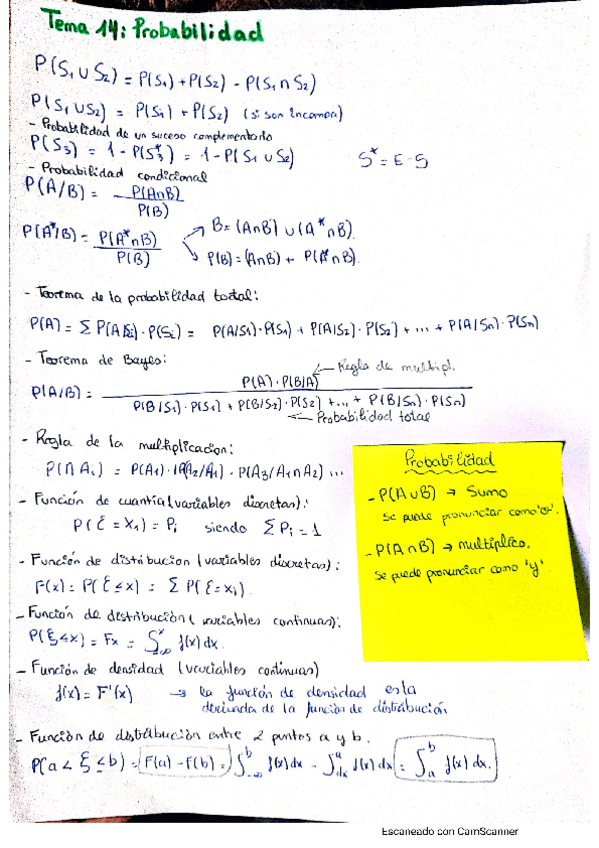 Tema 14: Probabilidad
P(S₁ ∪ S₂) = P(S₁) + P(S₂) - P(S₁ ∩ S₂)
P(S₁ ∪ S₂) = P(S₁) + P(S₂) (si son incompa)
- Probabilidad de un suceso complementario
P(S₃) = 1 - P(S₃*) = 1 - P(S₁ ∪ S₂) S* = E - S
- Probabilidad condicional
P(A/B) = P(A∩B) / P(B)
P(A*/B) = P(A*∩B) / P(B) → B = (A∩B) ∪ (A*∩B)
→ P(B) = (A∩B) + P(A*∩B).
- Teorema de la probabilidad total:
P(A) = Σ P(A/Si) · P(Si) = P(A/S₁) · P(S₁) + P(A/S₂) · P(S₂) + ... + P(A/Sn) · P(Sn)
- Teorema de Bayes:
← Regla de multipl.
P(A/B) = P(A) · P(B/A) / P(B/S₁) · P(S₁) + P(B/S₂) · P(S₂) + ... + P(B/Sn) · P(Sn)
← Probabilidad total
- Regla de la multiplicacion:
P(∩ Ai) = P(A₁) · P(A₂/A₁) · P(A₃/A₁∩A₂) ...
- Función de cuantía (variables discretas):
P(ξ = X₁) = Pi siendo Σ Pi = 1
- Función de distribucion (variables discretas):
F(x) = P(ξ ≤ x) = Σ P(ξ = xi).
- Función de distribución (variables continuas):
P(ξ ≤ x) = Fx = ∫_{-∞}^{x} f(x) dx.
- Función de densidad (variables continuas)
f(x) = F'(x) → la función de densidad es la
derivada de la función de distribución
- Función de distribución entre 2 puntos a y b.
P(a < ξ ≤ b) = F(a) - F(b) = ∫_{-∞}^{b} f(x) dx - ∫_{-∞}^{a} f(x) dx = ∫_{a}^{b} f(x) dx.
Probabilidad
- P(A∪B) → Sumo
Se puede pronunciar como 'o'.
- P(A∩B) → multiplico.
Se puede pronunciar como 'y'.
Escaneado con CamScanner